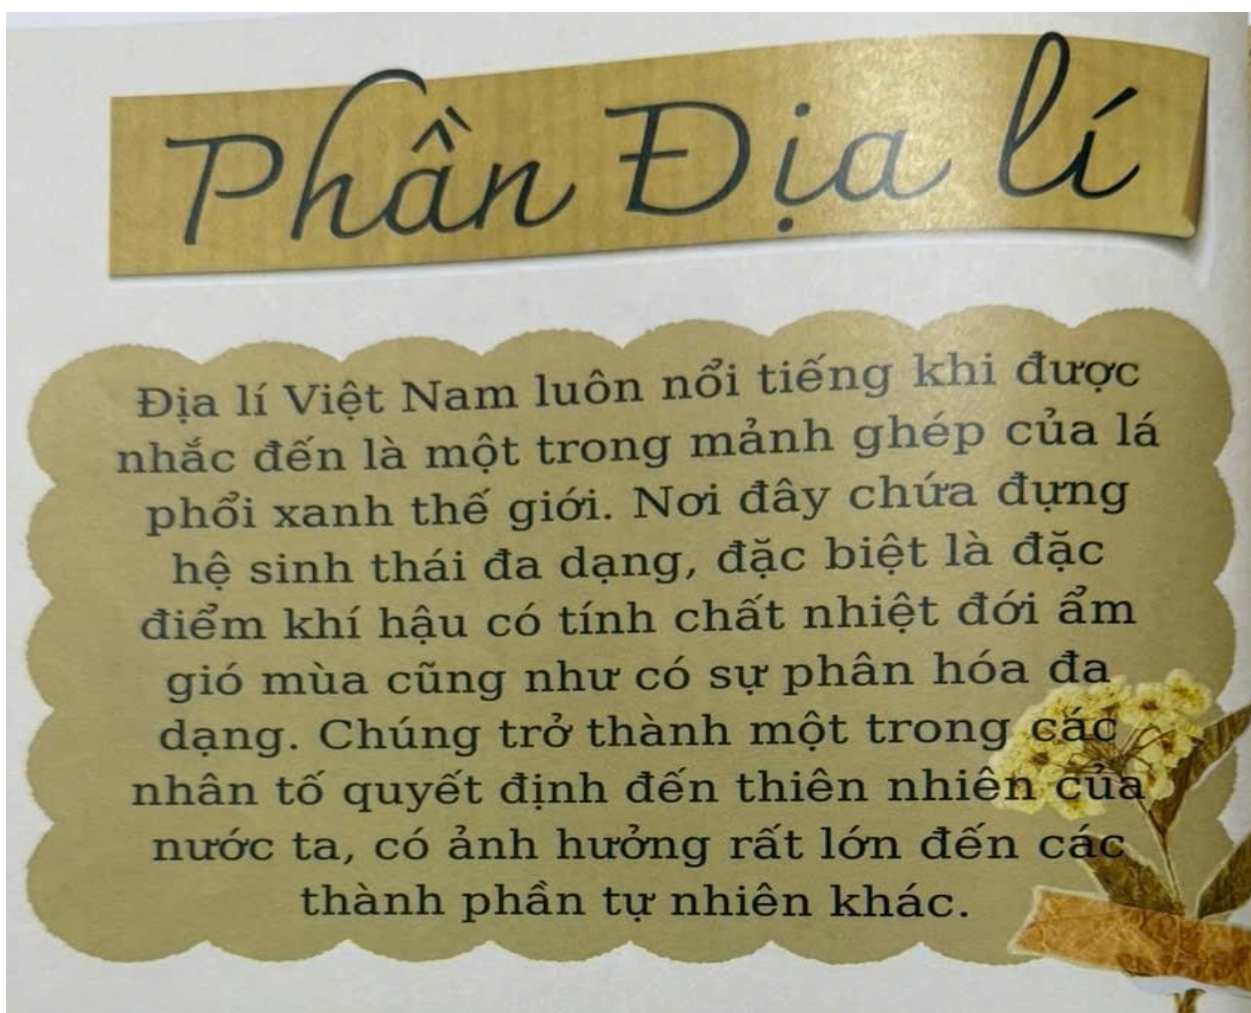 Phần Địa lí
Địa lí Việt Nam luôn nổi tiếng khi được
nhắc đến là một trong mảnh ghép của lá
phổi xanh thế giới. Nơi đây chứa đựng
hệ sinh thái đa dạng, đặc biệt là đặc
điểm khí hậu có tính chất nhiệt đới ẩm
gió mùa cũng như có sự phân hóa đa
dạng. Chúng trở thành một trong các
nhân tố quyết định đến thiên nhiên của
nước ta, có ảnh hưởng rất lớn đến các
thành phần tự nhiên khác.